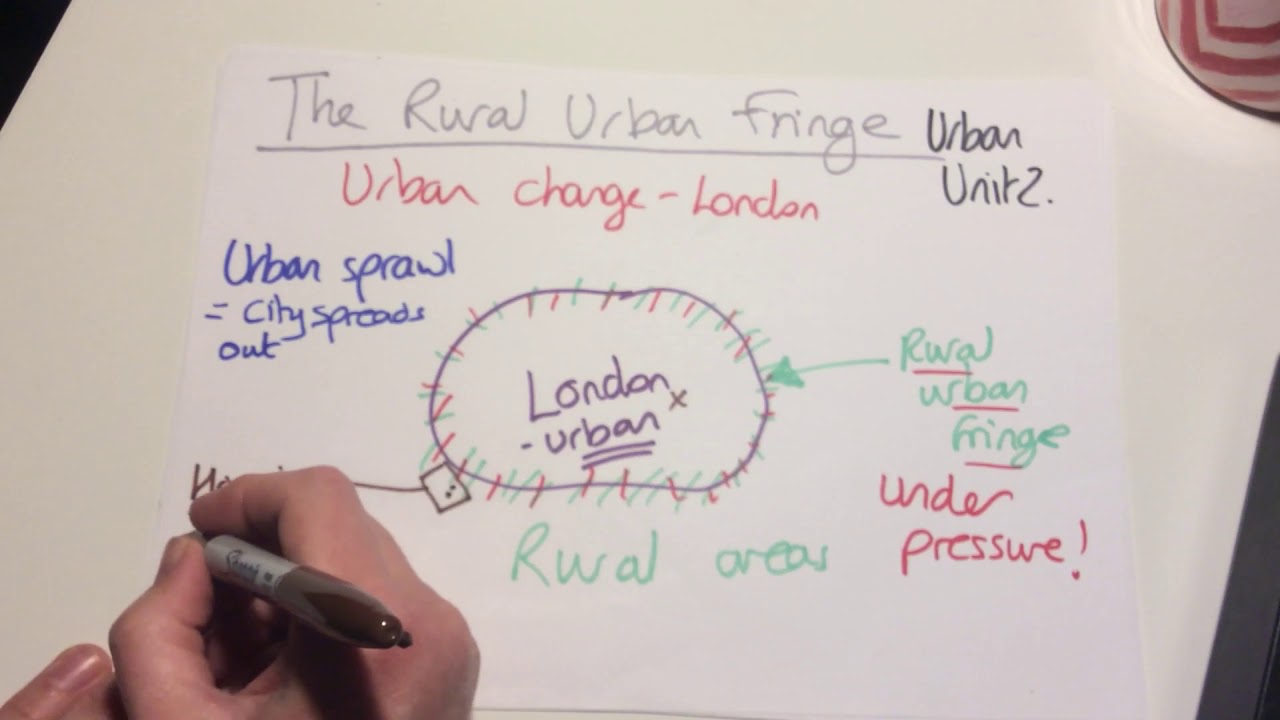 The Rural Urban Fringe
Urban
Unit 2.
Urban change - London
Urban sprawl
= City spreads
out
London x
- urban
Rural
urban
fringe
under
pressure!
Rural areas